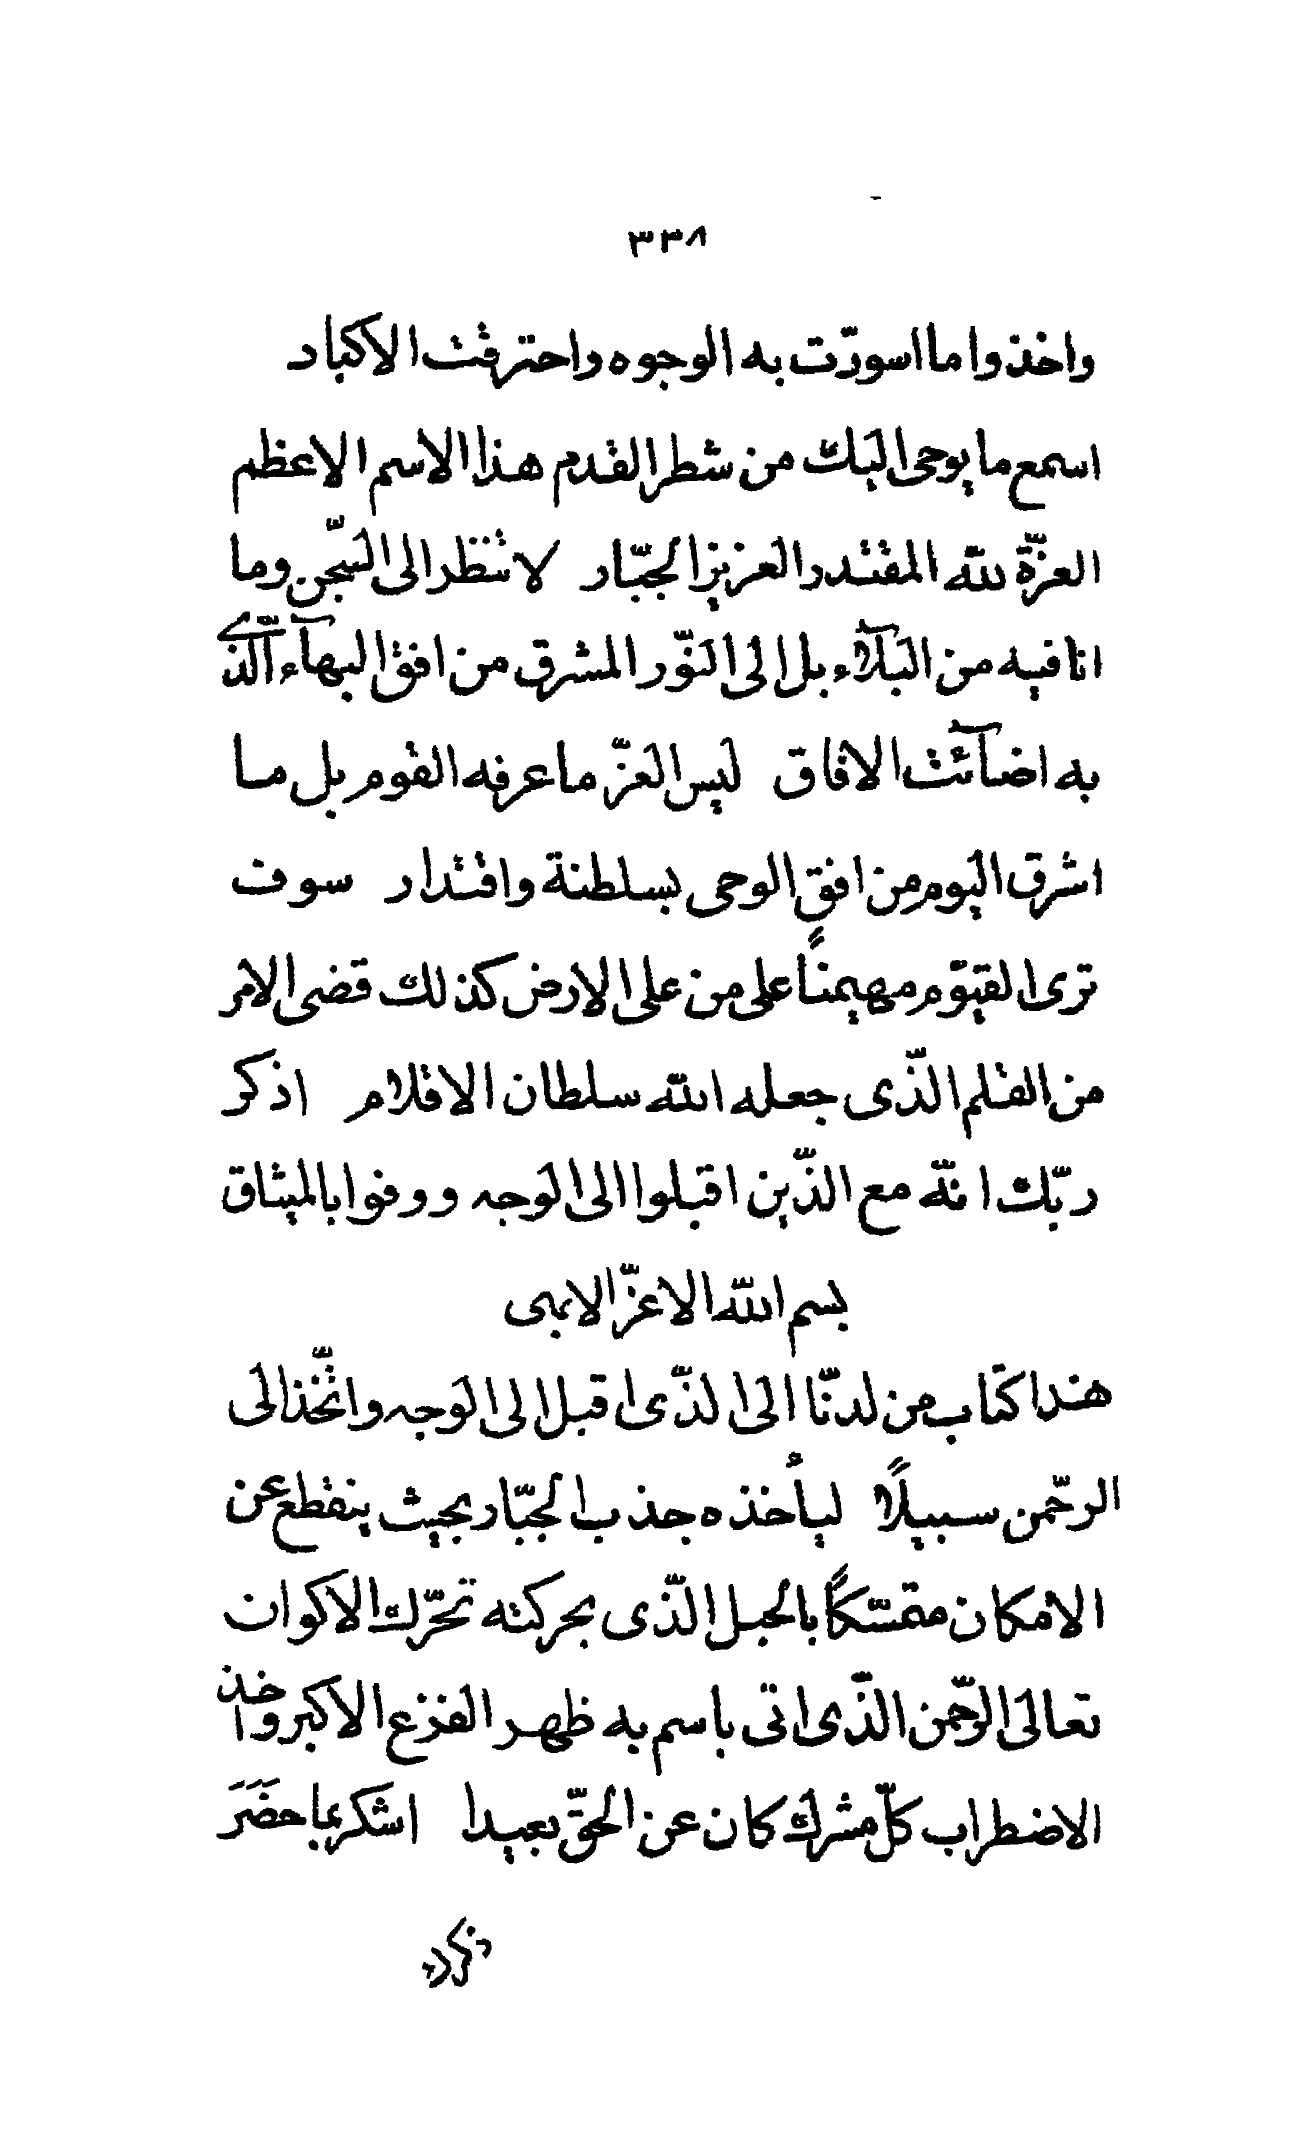 ٣٣٨
واخذوا ما اسودّت به الوجوه واحترقت الاكباد
اسمع ما يوحى اليك من شطر القدم هذا الاسم الاعظم
العزّة للّه المقتدر العزيز الجبّار لا تنظر الى السّجن وما
انا فيه من البلآء بل الى النّور المشرق من افق البهآء الّذى
به اضآئت الافاق ليس العزّ ما عرفه القوم بل ما
اشرق اليوم من افق الوحى بسلطنة واقتدار سوف
ترى القيّوم مهيمنًا على من على الارض كذلك قضى الامر
من القلم الّذى جعله اللّه سلطان الاقلام اذكر
ربّك انّه مع الّذين اقبلوا الى الوجه ووفوا بالميثاق
بسم اللّه الاعزّ الابهى
هذا كتاب من لدنّا الى الّذى اقبل الى الوجه واتّخذ الى
الرحّمن سبيلًا ليأخذه جذب الجبّار بحيث ينقطع عن
الامكان متمسّكًا بالحبل الّذى بحركته تحرّك الاكوان
تعالى الرحّمن الّذى اتى باسم به ظهر الفزع الاكبر واخذ
الاضطراب كلّ مشرك كان عن الحقّ بعيدا اشكر بما حضَرَ
ذكرك